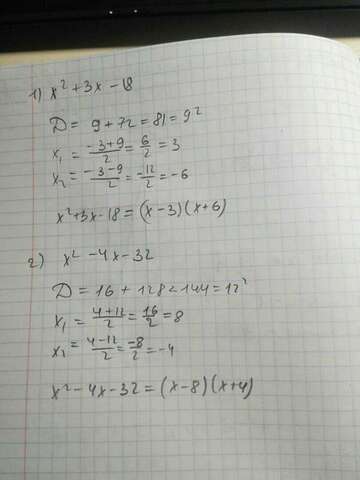 1) x² + 3x - 18
D = 9 + 72 = 81 = 9²
x₁ = (-3+9)/2 = 6/2 = 3
x₂ = (-3-9)/2 = -12/2 = -6
x² + 3x - 18 = (x - 3)(x + 6)
2) x² - 4x - 32
D = 16 + 128 = 144 = 12²
x₁ = (4+12)/2 = 16/2 = 8
x₂ = (4-12)/2 = -8/2 = -4
x² - 4x - 32 = (x - 8)(x + 4)